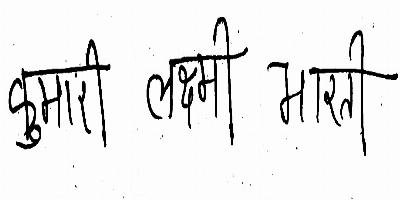 कुमारी लक्ष्मी भारती